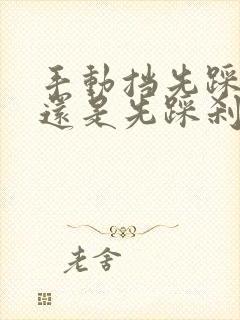 手動挡先踩
還是先踩刹
老舍